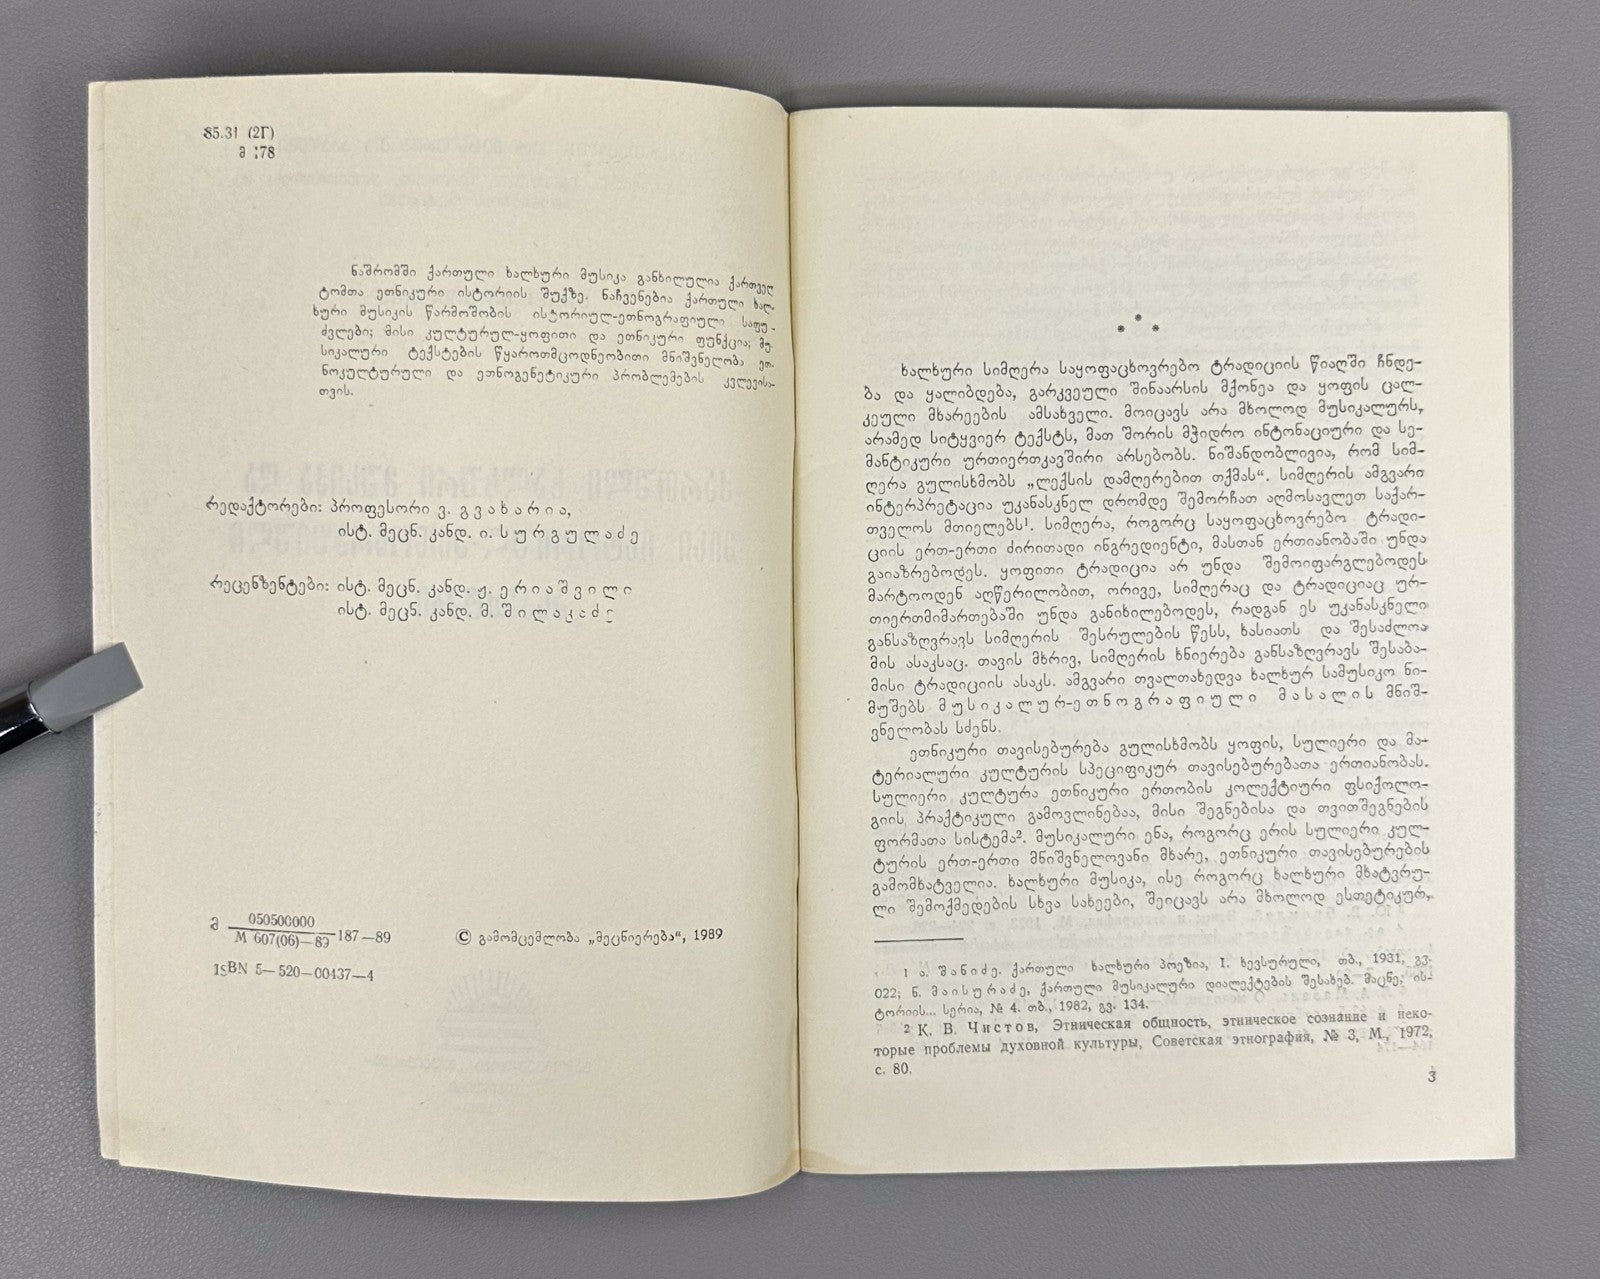 85.31 (2Г)
მ 178
ნაშრომში ქართული ხალხური მუსიკა განხილულია ქართველ
ტომთა ეთნიკური ისტორიის შუქზე. ნაჩვენებია ქართული ხალ-
ხური მუსიკის წარმოშობის ისტორიულ-ეთნოგრაფიული საფუ-
ძვლები; მისი კულტურულ-ყოფითი და ეთნიკური ფუნქცია; მუ-
სიკალური ტექსტების წყაროთმცოდნეობითი მნიშვნელობა ეთ-
ნოკულტურული და ეთნოგენეტიკური პრობლემების კვლევისა-
თვის.
რედაქტორები: პროფესორი ვ. გვახარია,
ისტ. მეცნ. კანდ. ი. სურგულაძე
რეცენზენტები: ისტ. მეცნ. კანდ. ჟ. ერიაშვილი
ისტ. მეცნ. კანდ. მ. შილაკაძე
მ 050500000
М 607(06)—89 187—89
© გამომცემლობა „მეცნიერება“, 1989
ISBN 5—520—00437—4
* * *
ხალხური სიმღერა საყოფაცხოვრებო ტრადიციის წიაღში ჩნდე-
ბა და ყალიბდება, გარკვეული შინაარსის მქონეა და ყოფის ცალ-
კეული მხარეების ამსახველი. მოიცავს არა მხოლოდ მუსიკალურს,
არამედ სიტყვიერ ტექსტს, მათ შორის მჭიდრო ინტონაციური და სე-
მანტიკური ურთიერთკავშირი არსებობს. ნიშანდობლივია, რომ სიმ-
ღერა გულისხმობს „ლექსის დამღერებით თქმას“. სიმღერის ამგვარი
ინტერპრეტაცია უკანასკნელ დრომდე შემორჩათ აღმოსავლეთ საქარ-
თველოს მთიელებს¹. სიმღერა, როგორც საყოფაცხოვრებო ტრადი-
ციის ერთ-ერთი ძირითადი ინგრედიენტი, მასთან ერთიანობაში უნდა
გაიაზრებოდეს. ყოფითი ტრადიცია არ უნდა შემოიფარგლებოდეს
მარტოოდენ აღწერილობით, ორივე, სიმღერაც და ტრადიციაც ურ-
თიერთმიმართებაში უნდა განიხილებოდეს, რადგან ეს უკანასკნელი
განსაზღვრავს სიმღერის შესრულების წესს, ხასიათს და შესაძლოა
მის ასაკსაც. თავის მხრივ, სიმღერის ხნიერება განსაზღვრავს შესაბა-
მისი ტრადიციის ასაკს. ამგვარი თვალთახედვა ხალხურ სამუსიკო ნი-
მუშებს მუსიკალურ-ეთნოგრაფიული მასალის მნიშ-
ვნელობას სძენს.
ეთნიკური თავისებურება გულისხმობს ყოფის, სულიერი და მა-
ტერიალური კულტურის სპეციფიკურ თავისებურებათა ერთიანობას.
სულიერი კულტურა ეთნიკური ერთობის კოლექტიური ფსიქოლო-
გიის პრაქტიკული გამოვლინებაა, მისი შეგნებისა და თვითშეგნების
ფორმათა სისტემა². მუსიკალური ენა, როგორც ერის სულიერი კულ-
ტურის ერთ-ერთი მნიშვნელოვანი მხარე, ეთნიკური თავისებურების
გამომხატველია. ხალხური მუსიკა, ისე როგორც ხალხური მხატვრუ-
ლი შემოქმედების სხვა სახეები, შეიცავს არა მხოლოდ ესთეტიკურ,
1 ა. შანიძე. ქართული ხალხური პოეზია, I. ხევსურული, თბ., 1931, გვ.
022; ნ. მაისურაძე, ქართული მუსიკალური დიალექტების შესახებ. მაცნე, ის-
ტორიის... სერია, № 4. თბ., 1982, გვ. 134.
2 К. В. Чистов, Этническая общность, этническое сознание и неко-
торые проблемы духовной культуры, Советская этнография, № 3, М., 1972,
с. 80.
3